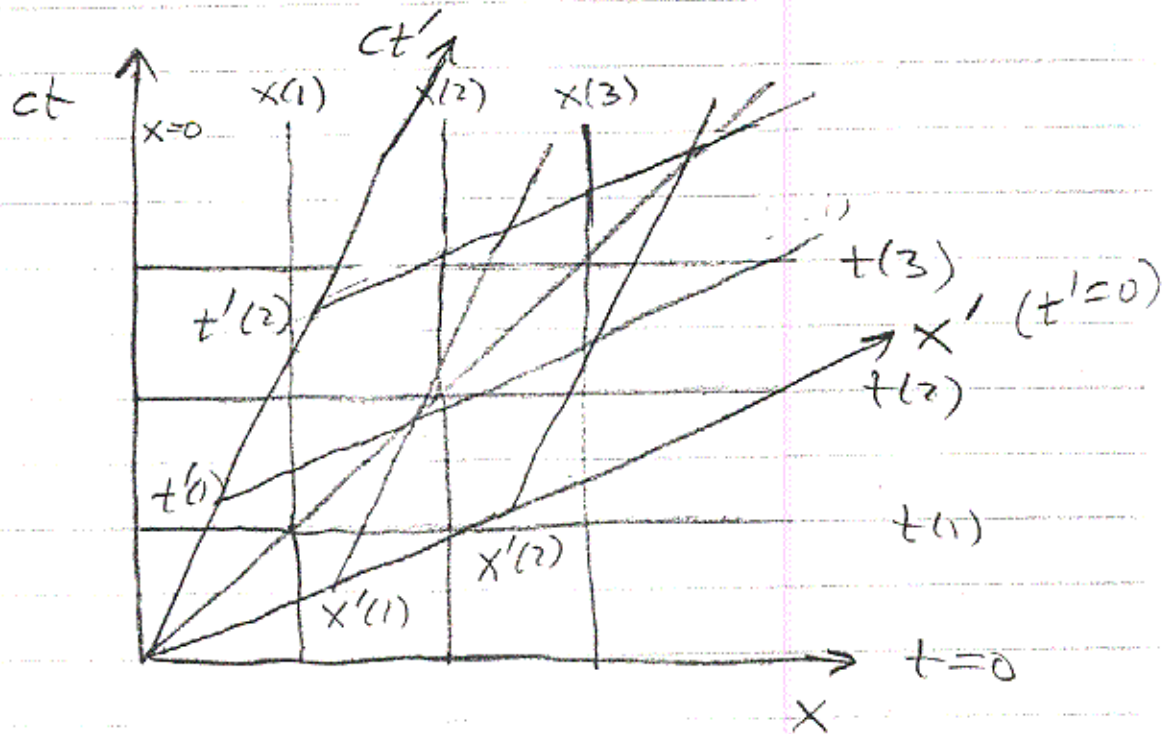 ct'
ct
x(1)
x(2)
x(3)
x=0
t(3)
t'(2)
x' (t'=0)
t(2)
t'(1)
t(1)
x'(2)
x'(1)
t=0
x